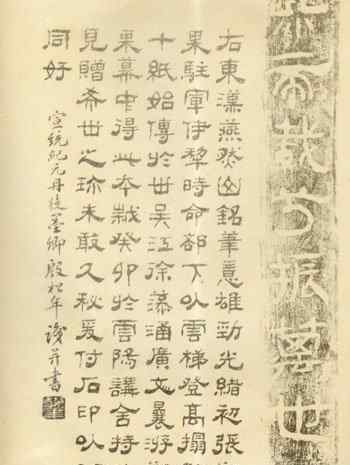 帝載兮振萬世
右東漢燕然山銘筆意雄勁光緒初張
果駐軍伊犂時命部下以雲梯登高搨
十紙始傳於世吳江徐藻涵廣文曩游
果幕中得此本歲癸卯於雲陽講舍持
見贈希世之珍未敢久秘爰付石印以
同好
宣統紀元丹徒墨卿殷松年識并書